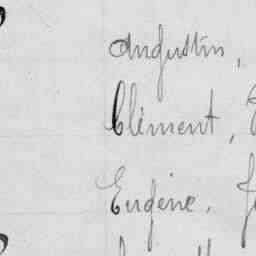 Augustin,
Clément,
Eugène,